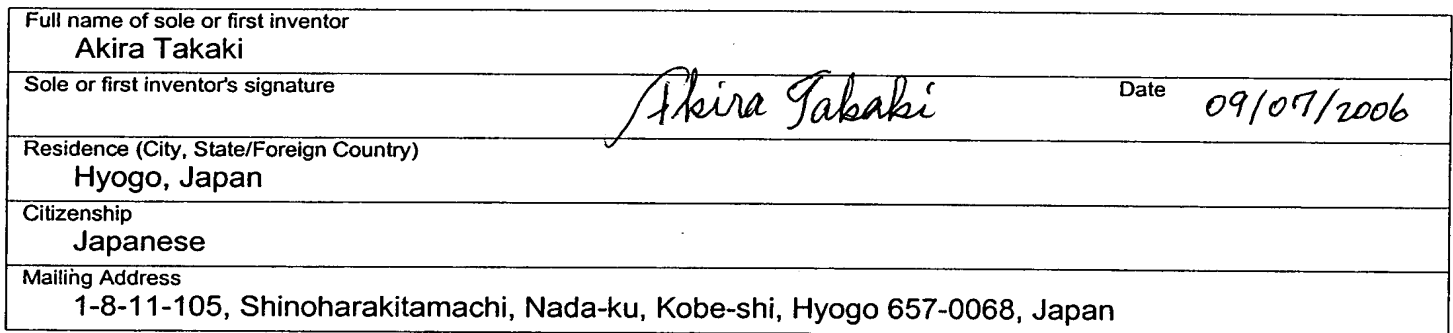 Full name of sole or first inventor
Akira Takaki
Sole or first inventor's signature
Akira Takaki
Date 09/07/2006
Residence (City, State/Foreign Country)
Hyogo, Japan
Citizenship
Japanese
Mailing Address
1-8-11-105, Shinoharakitamachi, Nada-ku, Kobe-shi, Hyogo 657-0068, Japan